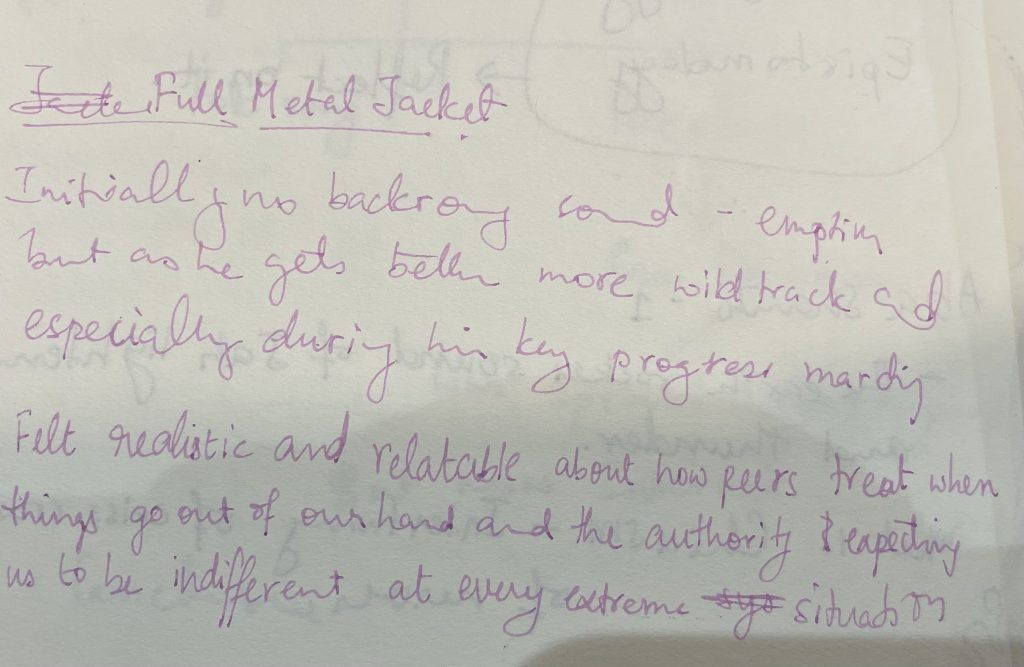 Full Metal Jacket
Initially no backrong sound - emptiy
but as he gets better more wild track and
especially during his key progress marching
Felt realistic and relatable about how peers treat when
things go out of our hand and the authority & expecting
us to be indifferent at every extreme situation